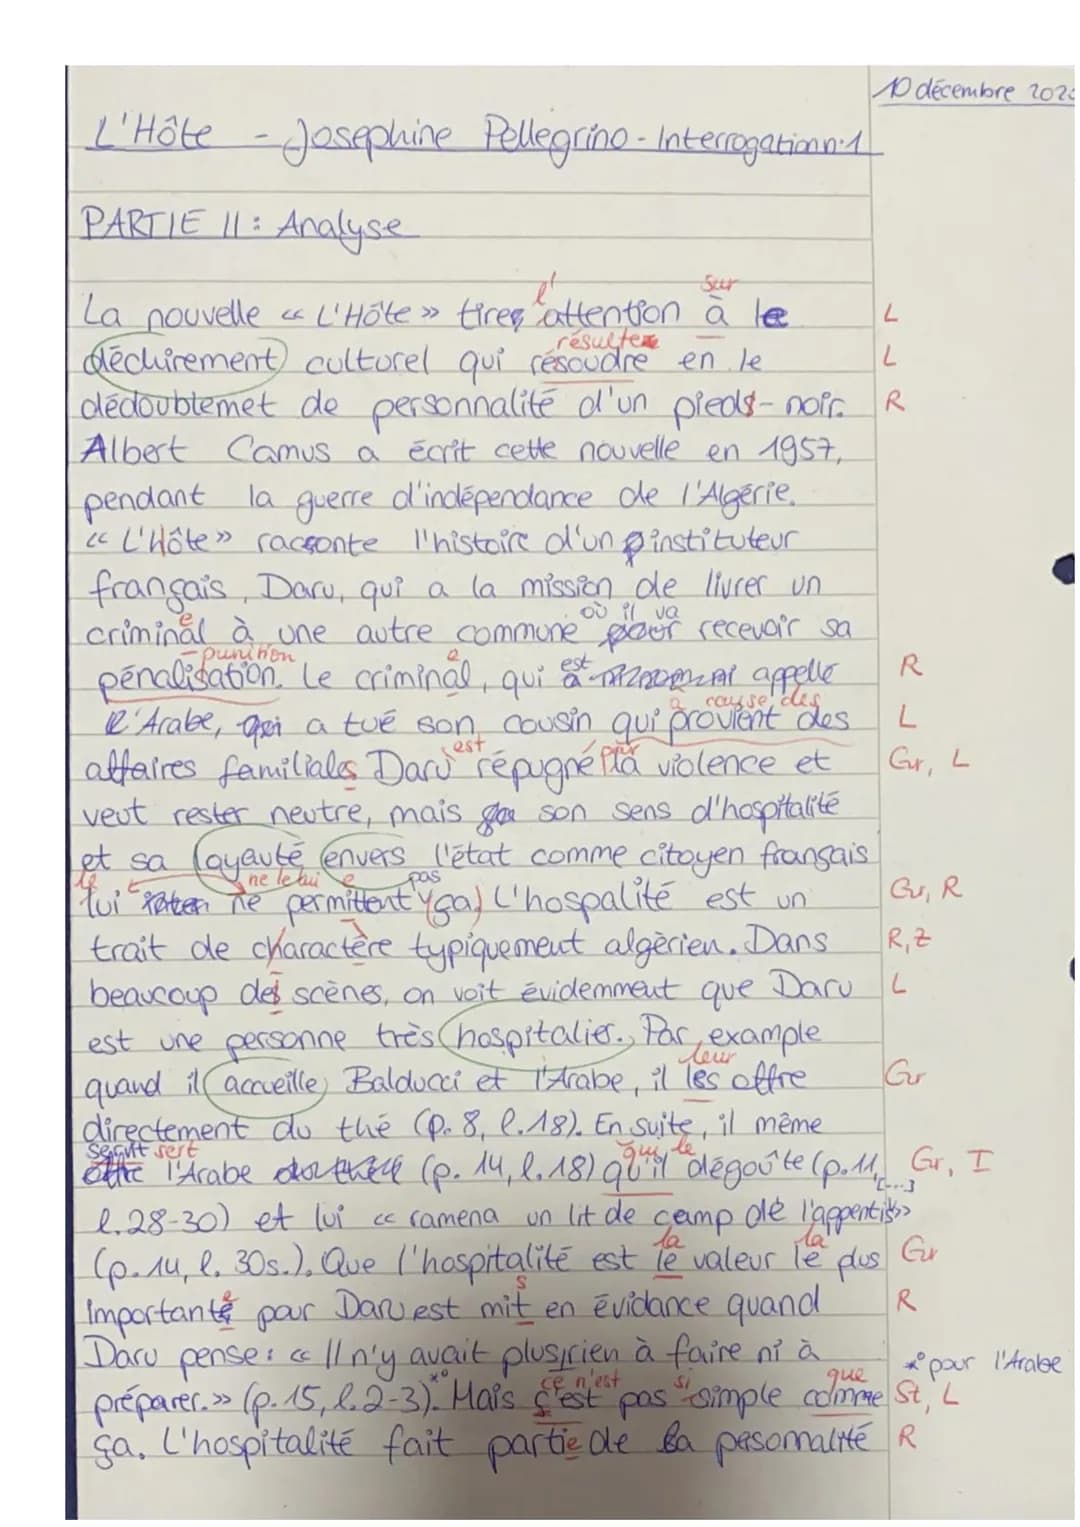 10 décembre 202
L'Hôte - Josephine Pellegrino - Interrogation n.1
PARTIE II: Analyse
l' sur
La nouvelle « L'Hôte » tires attention à le L
résulte
déchirement culturel qui résoudre en le L
dédoublemet de personnalité d'un pieds-noir. R
Albert Camus a écrit cette nouvelle en 1957,
pendant la guerre d'indépendance de l'Algérie.
« L'Hôte » raconte l'histoire d'un instituteur
français, Daru, qui a la mission de livrer un
e où il va
criminal à une autre commune pour recevoir sa
punition
pénalisation. Le criminal, qui est appellé R
e à cause des
l'Arabe, qui a tué son cousin qui provient des L
est par
affaires familiales Daru répugné la violence et Gr, L
veut rester neutre, mais son sens d'hospitalité
et sa loyauté envers l'état comme citoyen français
le ne le lui e pas
lui ne permittent ça. L'hospalité est un Gr, R
trait de charactère typiquement algérien. Dans R, Z
beaucoup des scènes, on voit évidemment que Daru L
est une personne très hospitalier. Par example
leur
quand il accueille Balducci et l'Arabe, il les offre Gr
directement du thé (p. 8, l. 18). En suite, il même
sert qui le
l'Arabe (p. 14, l. 18) qu'il dégoûte (p. 11, Gr, I
[...]
l. 28-30) et lui « ramena un lit de camp de l'appentis »
la la
(p. 14, l. 30s.). Que l'hospitalité est le valeur le plus Gr
s
importante pour Daru est mit en évidance quand R
Daru pense: « Il n'y avait plus rien à faire ni à
* pour l'Arabe
ce n'est si que
préparer. » (p. 15, l. 2-3)* Mais c'est pas simple comme St, L
ça. L'hospitalité fait partie de la pesonnalité R